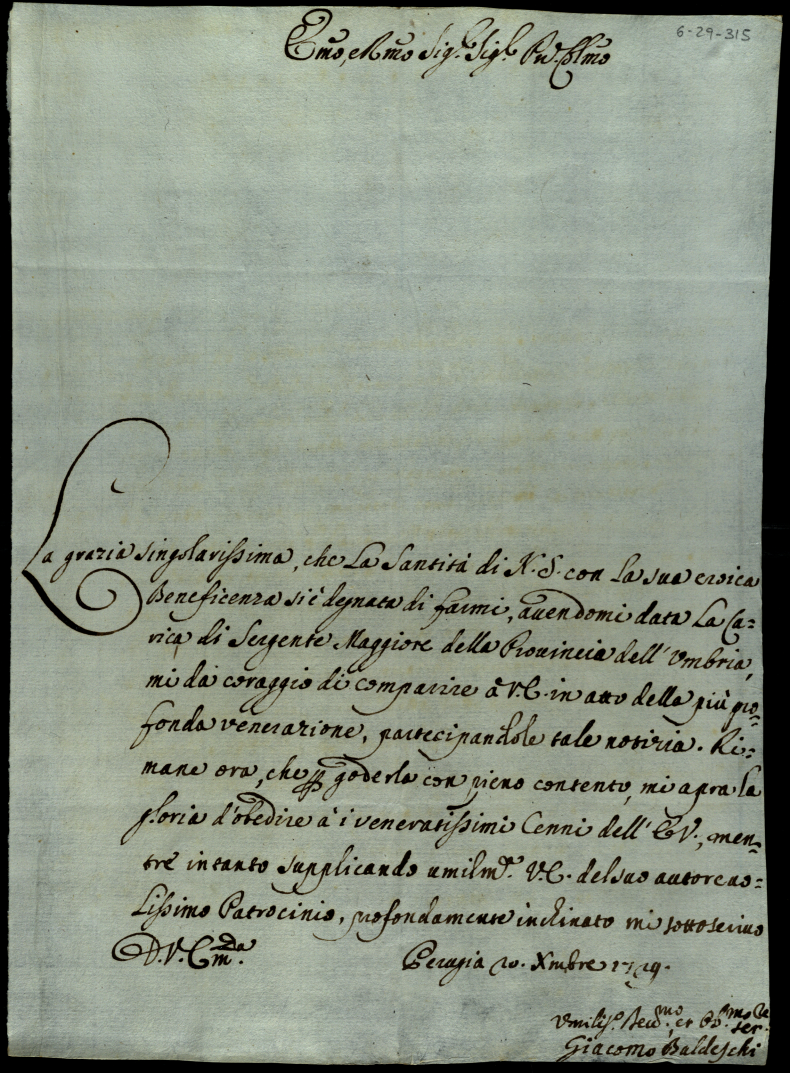 6-29-315
Emo, e Rmo Sig.r Sig.r Pn̄. Colmo
La grazia singolarissima, che La Santità di N. S. con La sua eroica
Beneficenza si è degnata di farmi, avendomi data La Ca=
rica di Sergente Maggiore della Provincia dell' Vmbria,
mi dà coraggio di comparire à V. E. in atto della più pro=
fonda venerazione, partecipandole tale notizia. Ri=
mane ora, che p goderla con pieno contento, mi apra la
gloria d'obedire à i veneratissimi Cenni dell' E V., men=
tre intanto supplicando umilmte. V. E. del suo autorevo=
Lissimo Patrocinio, profondamente inchinato mi sottoscrivo
D. V. Em.da
Perugia 20. Xmbre 1729.
Vmiliss.o Deumo., et Obmo Se
ser.
Giacomo Baldeschi